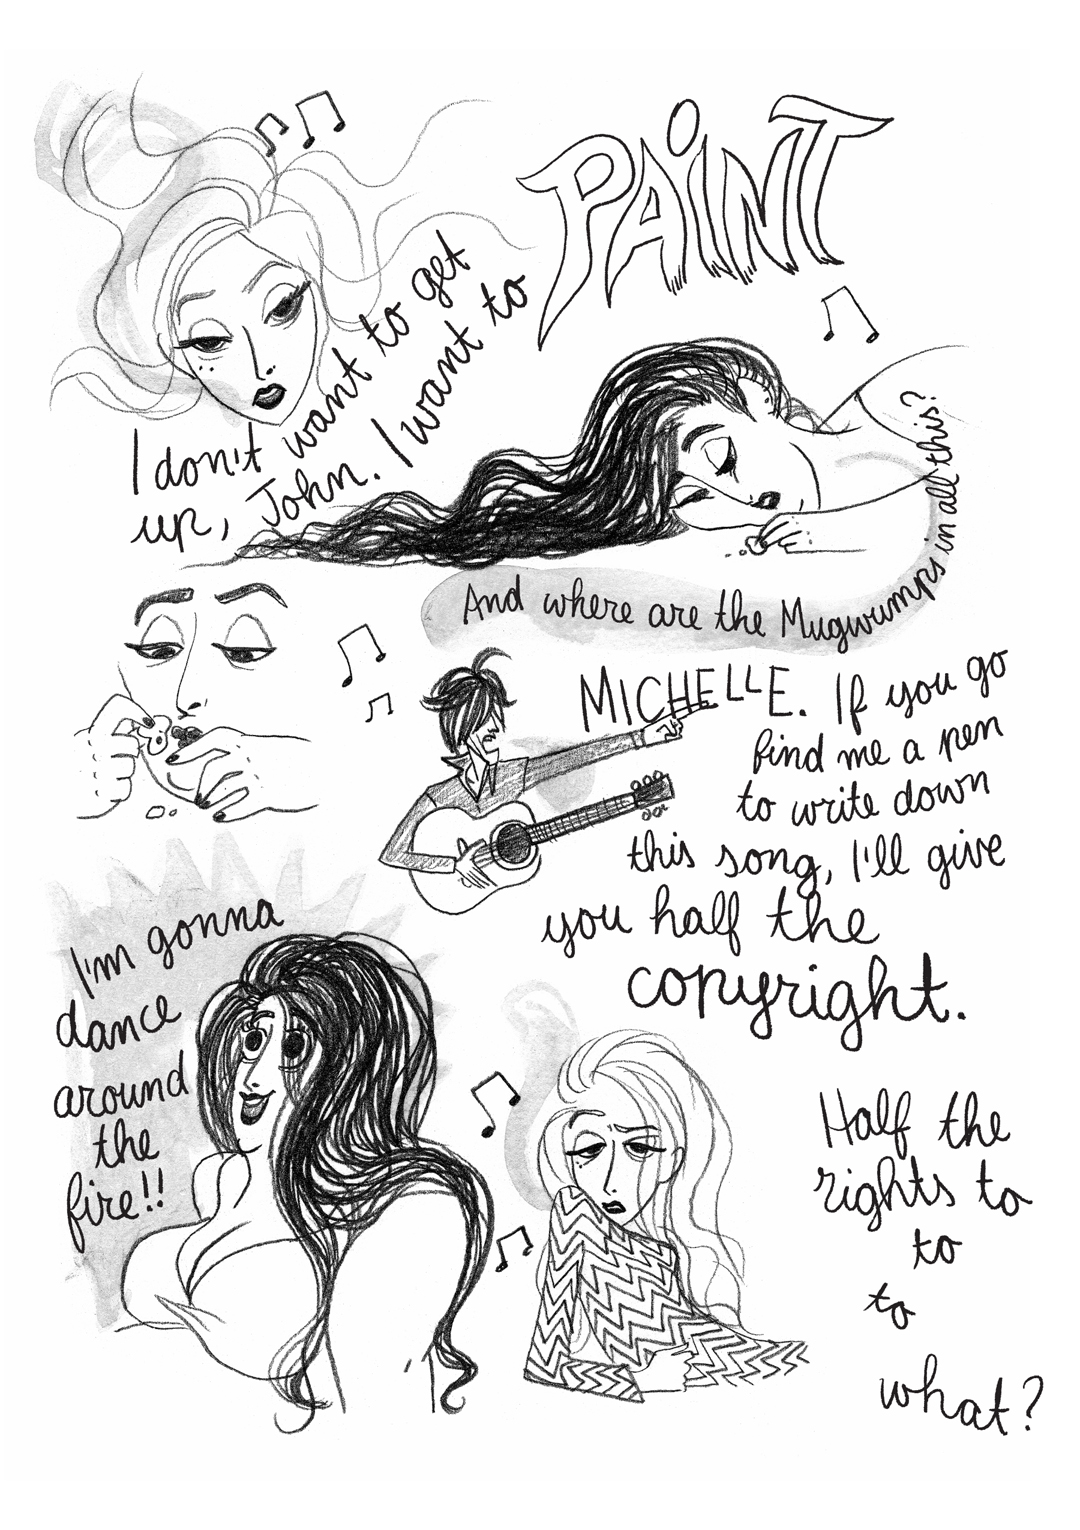 I don't want to get
up, John. I want to
PAiNT
And where are the Mugwumps in all this?
MICHELLE. If you go
find me a pen
to write down
this song, I'll give
you half the
copyright.
I'm gonna
dance
around
the
fire!!
Half the
rights to
to
to
what?